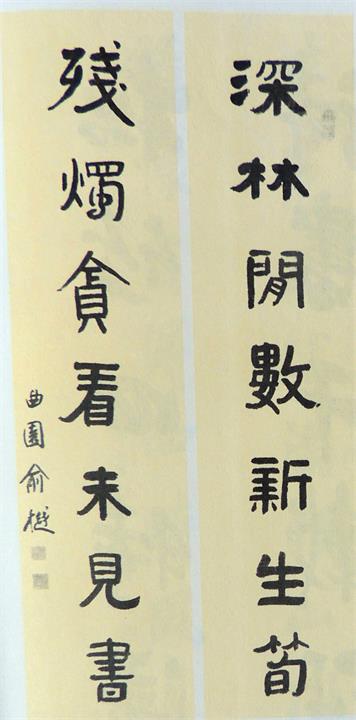 深林閒數新生筍
殘燭貪看未見書
曲園俞樾